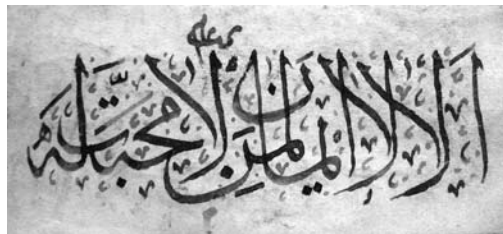 اَلا لا ايمان لمن لا محبّة له